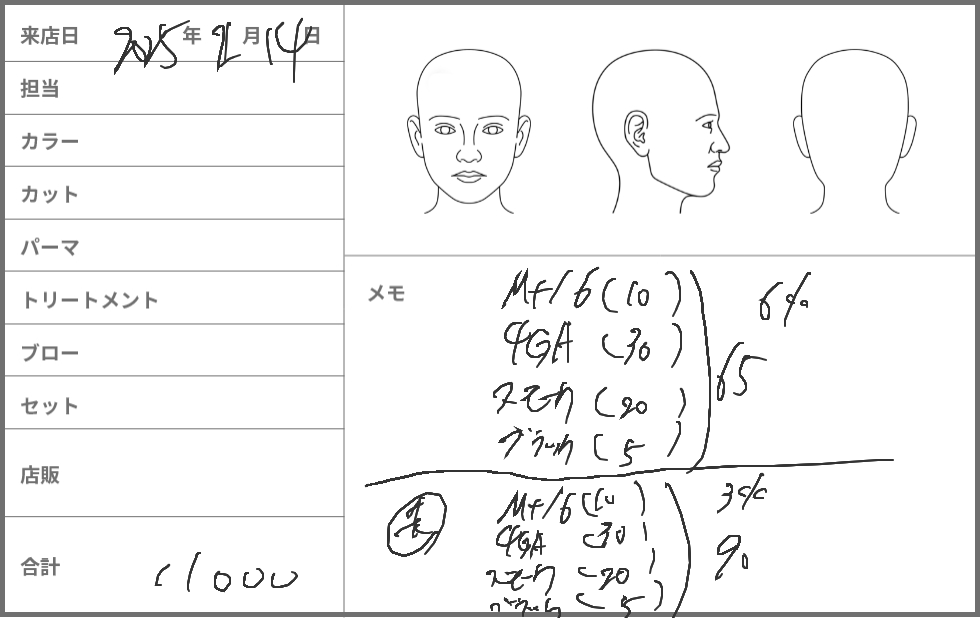 来店日 2025年 2月14日
担当
カラー
カット
パーマ
トリートメント
ブロー
セット
店販
合計 11000
メモ
M+/6 (10) 6%
4GA (30)
スモーク (20) 65
ブラック (5)
M+/6 (10) 3%
4GA (30)
スモーク (20) 90
ブラック (5)